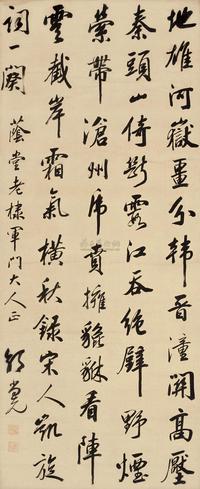 地雄河嶽疆分韓晉潼關高壓
秦頭山倚斷霞江吞絕壁野煙
縈帶滄州虎賁擁貔貅看陣
雲截岸霜氣橫秋錄宋人凱旋
詞一闋
蔭堂老棣軍門大人正